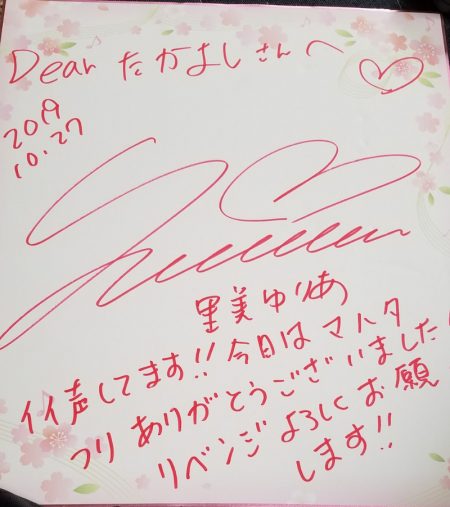 Dear たかよしさんへ
2019
10.27
里美ゆりあ
イイ声してます!!今日はマハタ
フリありがとうございました!
リベンジよろしくお願
します!!